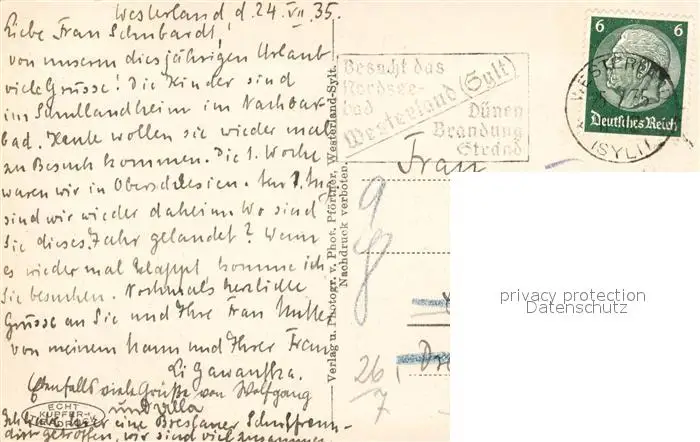 Westerland d. 24. VII. 35.
Liebe Frau Schubardt!
von unserm diesjährigen Urlaub
viele Grüsse! Die Kinder sind
im Schullandheim im Nachbar-
bad. Heute wollen sie wieder mal
zu Besuch kommen. Die 1. Woche
waren wir in Oberschlesien. Am 1.
sind wir wieder daheim. Wo sind
Sie dieses Jahr gelandet? Wenn
es wieder mal klappt, komme ich
Sie besuchen. Nochmals herzliche
Grüsse an Sie und Ihre Frau Mutter
von meinem Mann und Ihrer Frau
Li
Ebenfalls viele Grüße von Wolfgang
und
hier eine Breslauer
getroffen, wir sind viel zusammen
ECHT
KUPFER-
Verlag u. Photogr. v. Phot. Pförtner, Westerland-Sylt.
Nachdruck verboten.
Besucht das
Nordsee-
bad
Westerland (Sylt)
Dünen
Brandung
Strand
6 6
Deutsches Reich
WESTERLAND
(SYLT)
Frau
26/7
privacy protection
Datenschutz